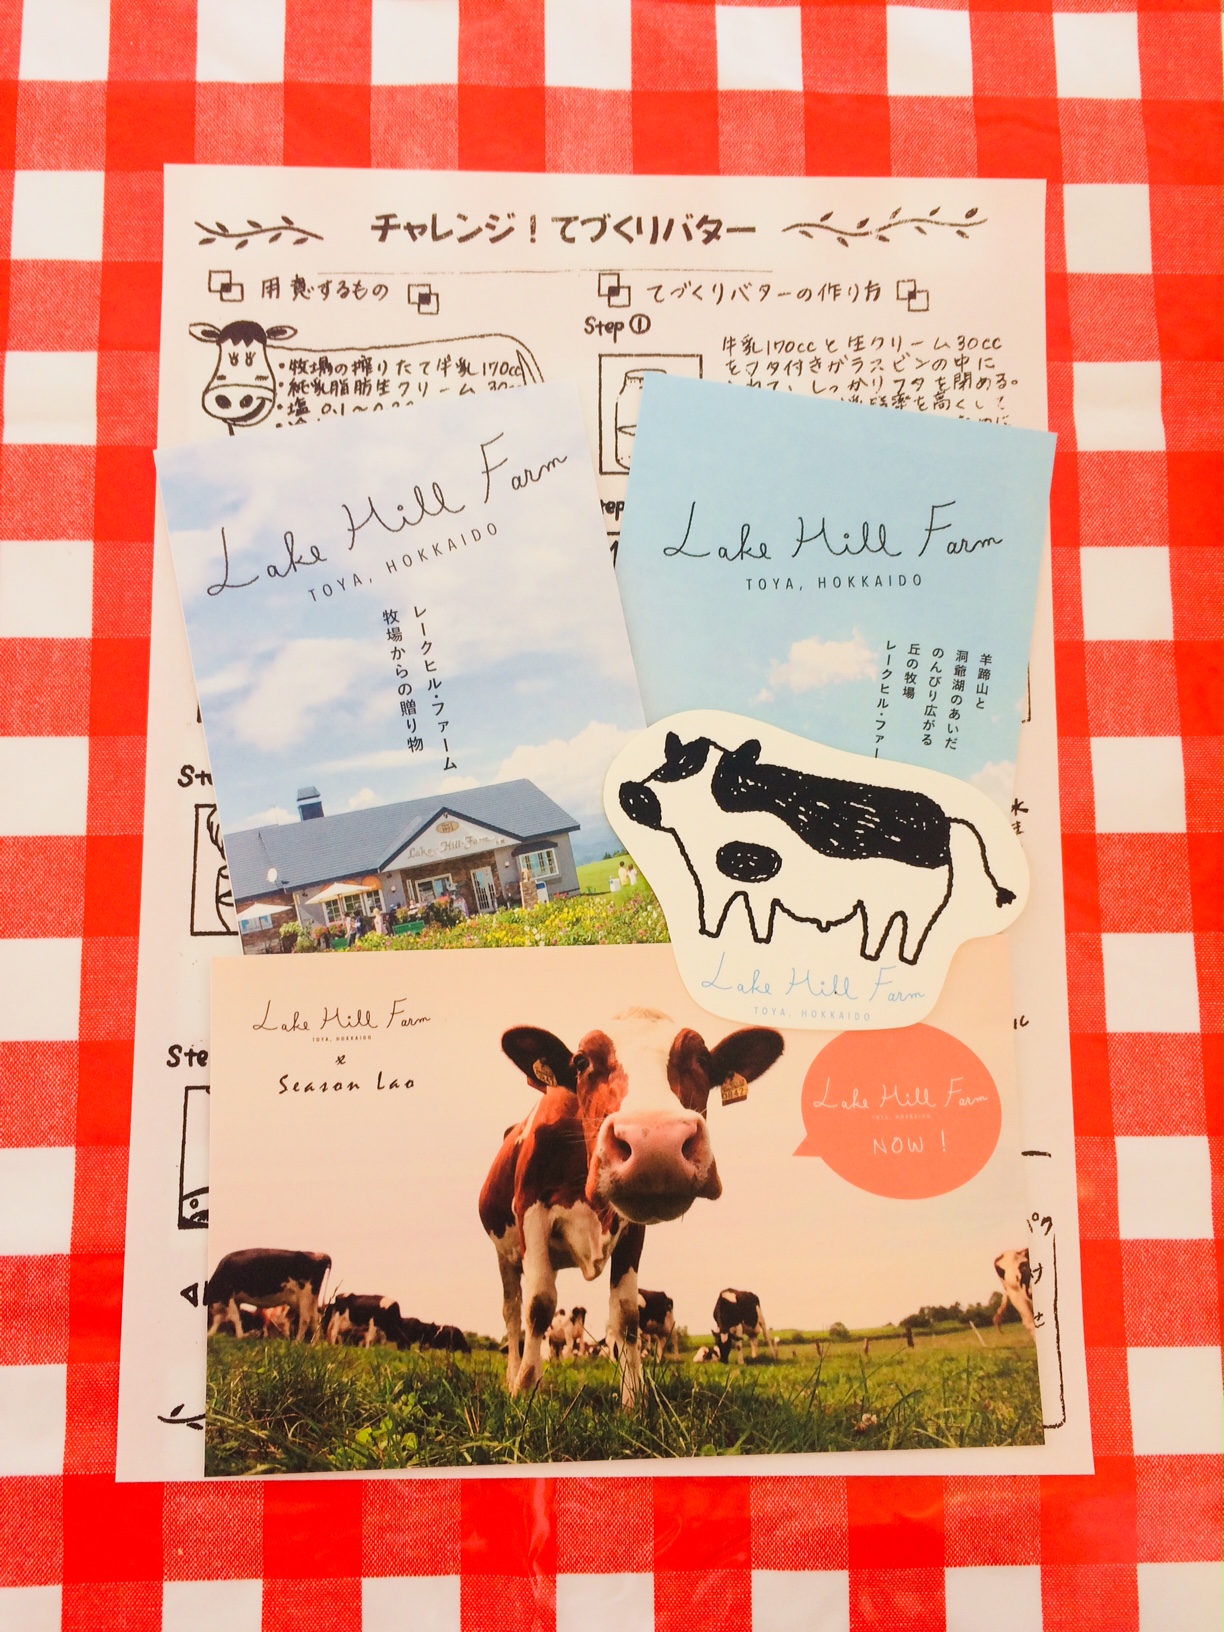 チャレンジ！てづくりバター
用意するもの
・牧場の搾りたて牛乳170cc
・純乳脂肪生クリーム 30cc
・塩 0.1～
てづくりバターの作り方
Step ①
牛乳170ccと生クリーム30cc
をフタ付きガラスビンの中に
しっかりフタを閉める。
を高くして
Lake Hill Farm
TOYA, HOKKAIDO
レークヒル・ファーム
牧場からの贈り物
Lake Hill Farm
Lake Hill Farm
TOYA, HOKKAIDO
羊蹄山と
洞爺湖のあいだ
のんびり広がる
丘の牧場
レークヒル・ファー
Lake Hill Farm
TOYA, HOKKAIDO
Lake Hill Farm
TOYA, HOKKAIDO
x
Season Lao
Lake Hill Farm
TOYA, HOKKAIDO
NOW !